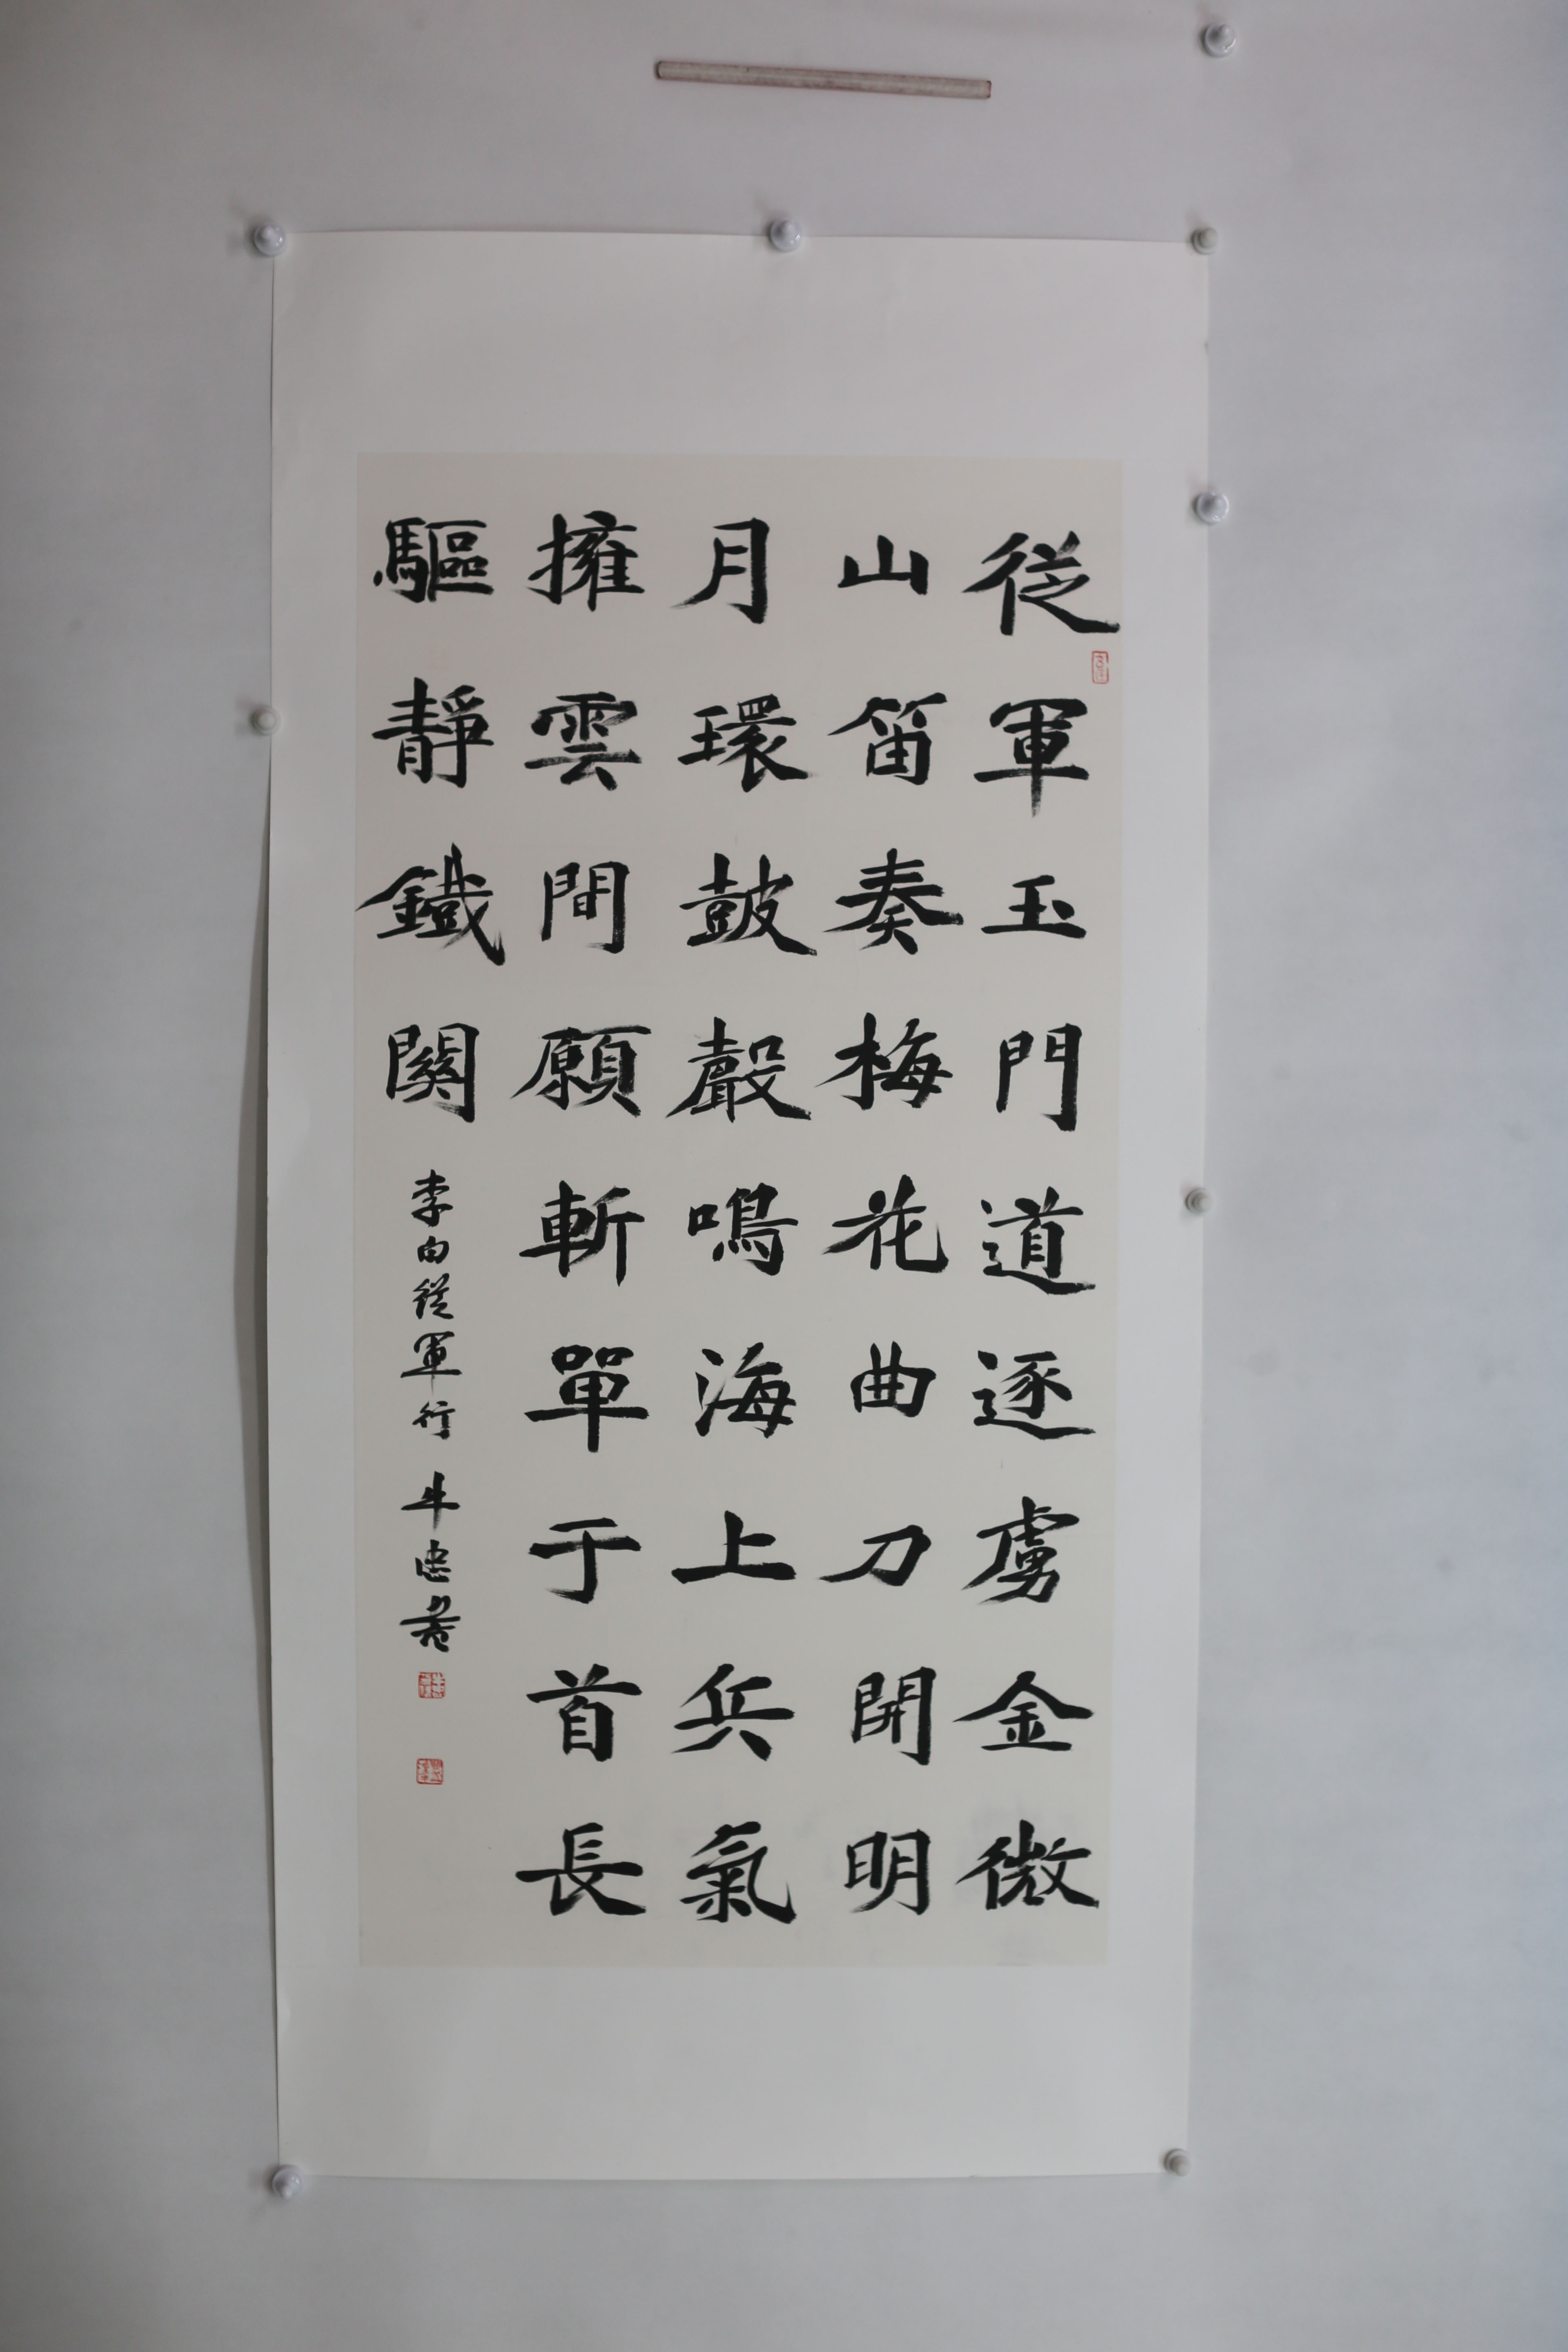 從軍玉門道逐虜金微
山笛奏梅花曲刀開明
月環鼓聲鳴海上兵氣
擁雲間願斬單于首長
驅靜鐵關
李白從軍行 牛忠